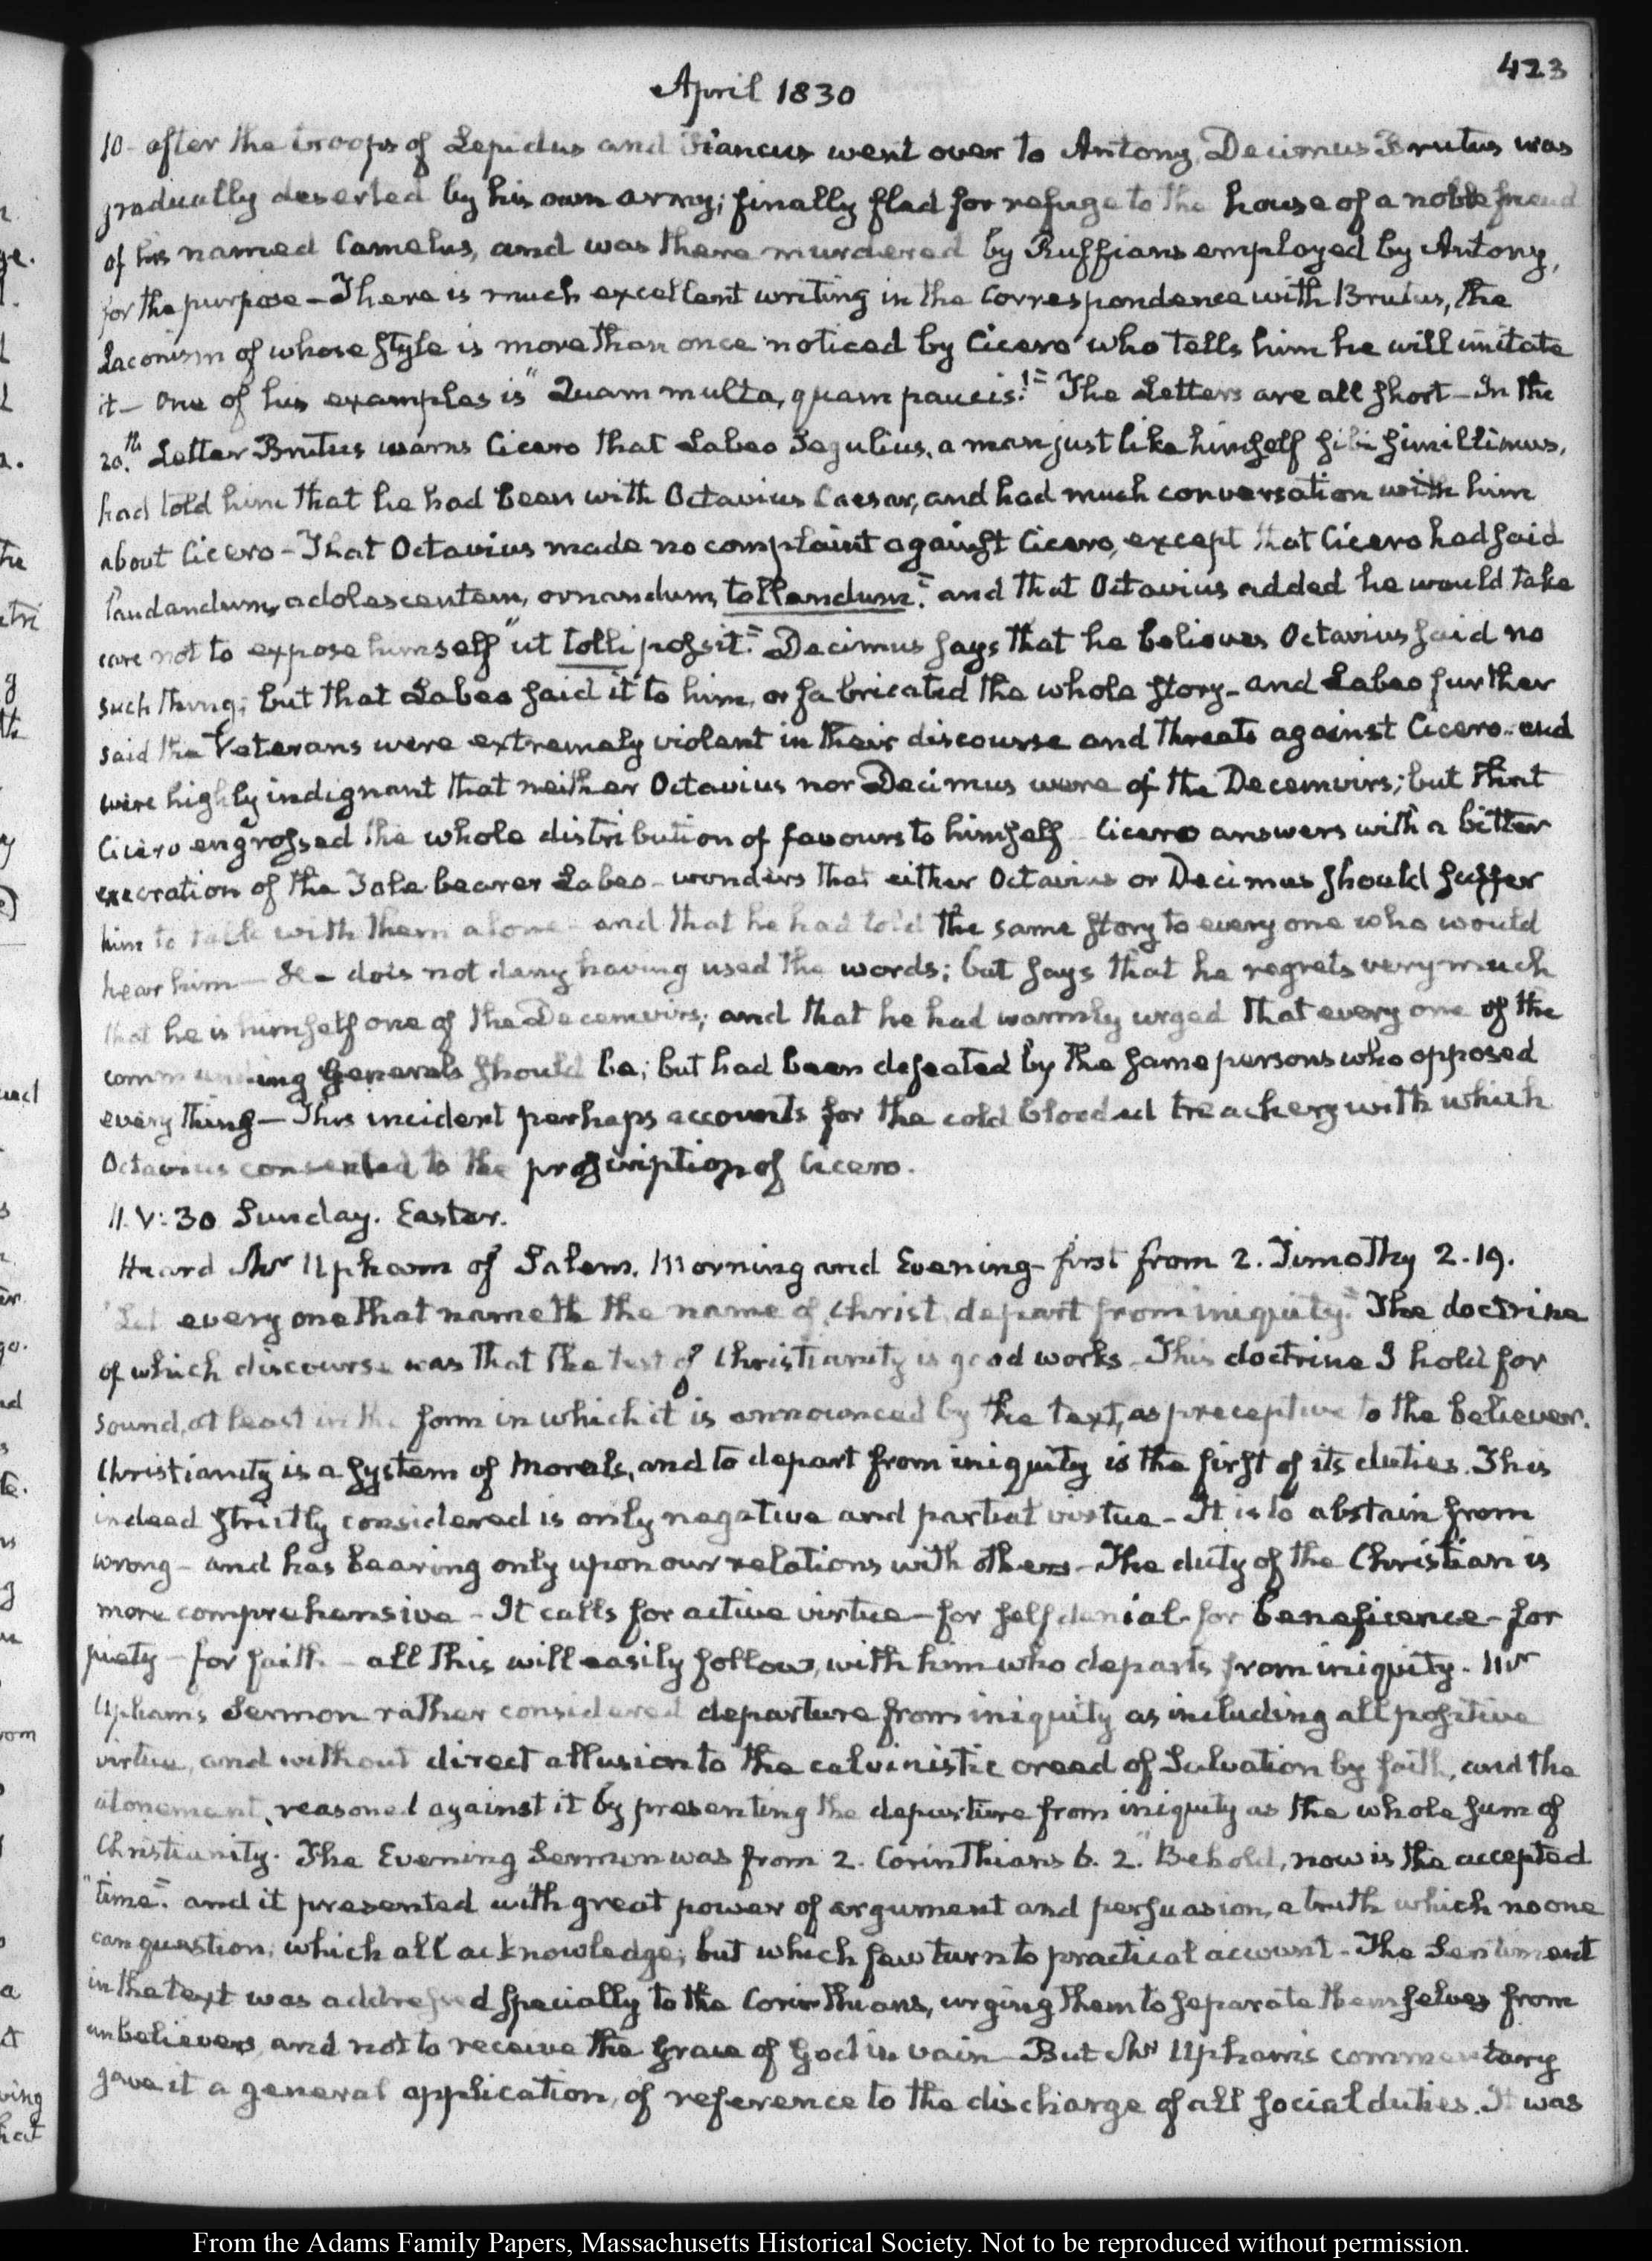 423
April 1830
10 - after the troops of Lepidus and Plancus went over to Antony, Decimus Brutus was
gradually deserted by his own army; finally fled for refuge to the house of a noble friend
of his named Camelus, and was there murdered by Ruffians employed by Antony,
for the purpose — There is much excellent writing in the correspondence with Brutus, the
Laconism of whose style is more than once noticed by Cicero who tells him he will imitate
it — One of his examples is "Quam multa, quam paucis!" The Letters are all short — In the
20th. Letter Brutus warns Cicero that Labeo Segulius, a man just like himself sibi simillimus,
had told him that he had been with Octavius Caesar, and had much conversation with him
about Cicero — That Octavius made no complaint against Cicero, except that Cicero had said
laudandum, adolescentem, ornandum, tollendum." and that Octavius added he would take
care not to expose himself "ut tolli possit." Decimus says that he believes Octavius said no
such thing; but that Labeo said it to him, or fabricated the whole story — and Labeo further
said the Veterans were extremely violent in their discourse and threats against Cicero — and
were highly indignant that neither Octavius nor Decimus were of the Decemvirs; but that
Cicero engrossed the whole distribution of favours to himself — Cicero answers with a bitter
execration of the Tale-bearer Labeo — wonders that either Octavius or Decimus should suffer
him to talk with them alone — and that he had told the same story to every one who would
hear him — He does not deny having used the words; but says that he regrets very much
that he is himself one of the Decemvirs; and that he had warmly urged that every one of the
commanding Generals should be; but had been defeated by the same persons who opposed
every thing — This incident perhaps accounts for the cold blooded treachery with which
Octavius consented to the proscription of Cicero.
11. V: 30 Sunday. Easter.
Heard Mr Upham of Salem, Morning and Evening — first from 2. Timothy 2. 19.
"Let every one that nameth the name of Christ, depart from iniquity." The doctrine
of which discourse was that the test of Christianity is good works — This doctrine I hold for
sound, at least in the form in which it is announced by the text, as preceptive to the believer.
Christianity is a system of Morals, and to depart from iniquity is the first of its duties. This
indeed strictly considered is only negative and partial virtue — It is to abstain from
wrong — and has bearing only upon our relations with others — The duty of the Christian is
more comprehensive — It calls for active virtue — for self denial — for beneficence — for
piety — for faith — all this will easily follow, with him who departs from iniquity. Mr
Upham's Sermon rather considered departure from iniquity as including all positive
virtue, and without direct allusion to the calvinistic creed of Salvation by faith, and the
atonement, reasoned against it by presenting the departure from iniquity as the whole sum of
Christianity. The Evening Sermon was from 2. Corinthians 6. 2. "Behold, now is the accepted
"time." and it presented with great power of argument and persuasion, a truth which no one
can question; which all acknowledge; but which few turn to practical account — The Sentiment
in the text was addressed specially to the Corinthians, urging them to separate themselves from
unbelievers, and not to receive the Grace of God in vain — But Mr Upham's commentary
gave it a general application, of reference to the discharge of all social duties. It was
From the Adams Family Papers, Massachusetts Historical Society. Not to be reproduced without permission.